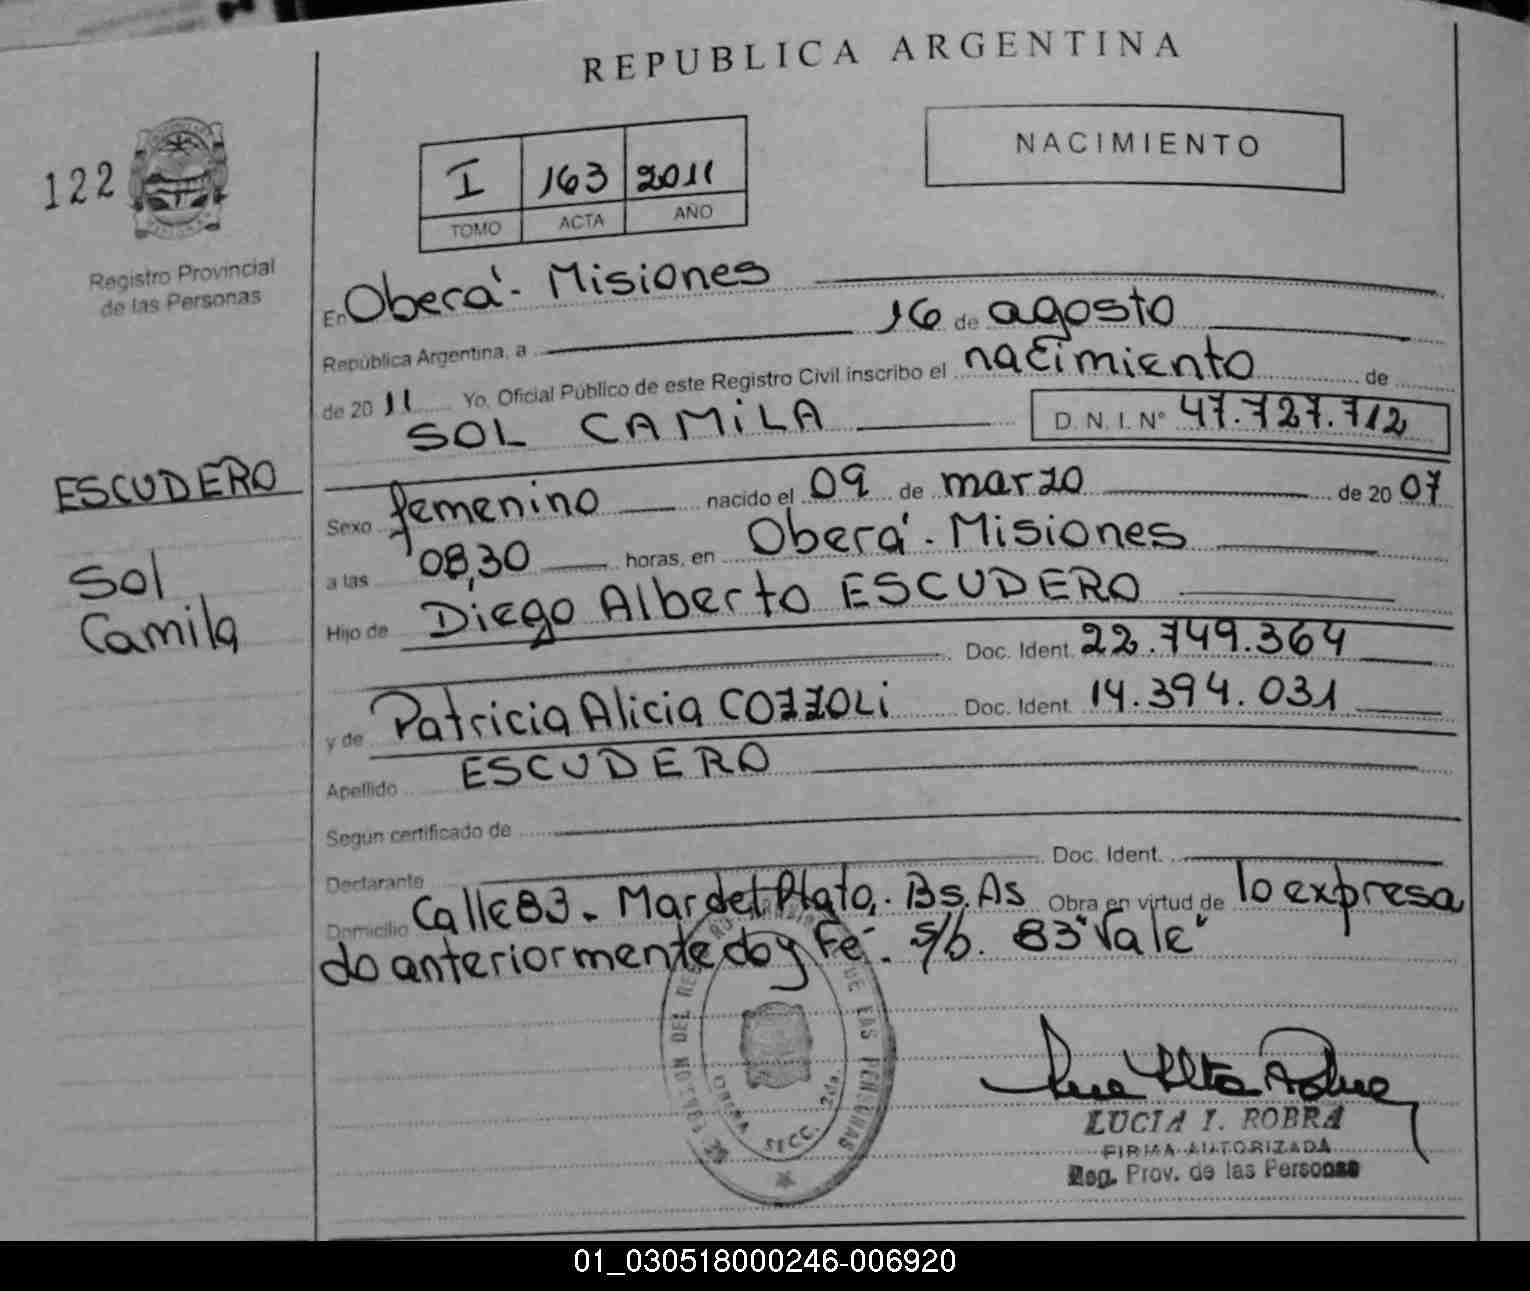 REPUBLICA ARGENTINA
122
NACIMIENTO
I 163 2011
TOMO ACTA AÑO
Registro Provincial
de las Personas
En Oberá - Misiones
República Argentina, a 16 de agosto
de 2011 Yo, Oficial Público de este Registro Civil inscribo el nacimiento de
SOL CAMILA D. N. I. Nº 47.727.712
ESCUDERO
Sol
Camila
Sexo femenino nacido el 09 de marzo de 2007
a las 08,30 horas, en Oberá - Misiones
Hijo de Diego Alberto ESCUDERO
Doc. Ident. 22.749.364
y de Patricia Alicia COZZOLI Doc. Ident. 14.394.031
Apellido ESCUDERO
Según certificado de
Declarante Doc. Ident.
Domicilio Calle 83 - Mar del Plata, - Bs. As Obra en virtud de lo expresa
do anteriormente doy Fe -. s/b. 83 "Vale"
DEL DE LAS PERSONAS
SECC. 2da.
LUCIA I. ROBRA
FIRMA AUTORIZADA
Reg. Prov. de las Personas
01_030518000246-006920